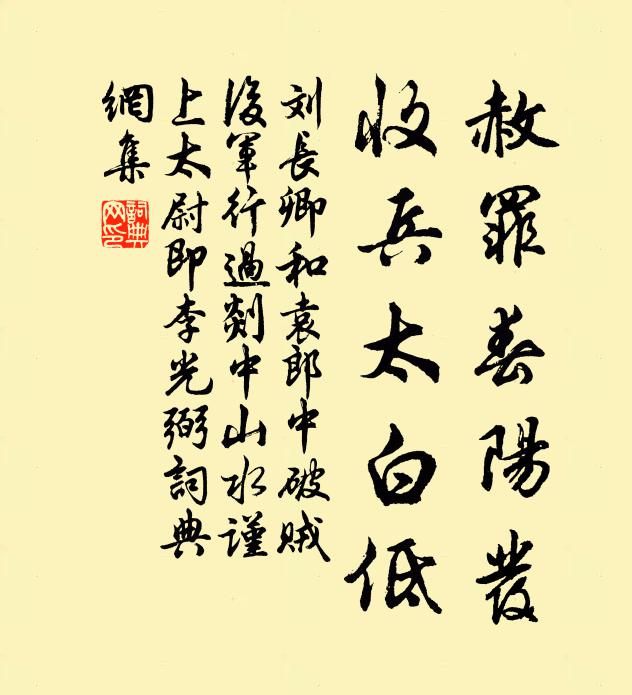 赦罪春陽發
收兵太白低
刘長卿和袁郎中破賊
後軍行過剡中山水謹
上太尉即李光弼詞典
網集
詞典
网印